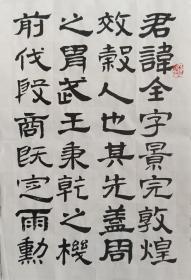 君諱全字景完敦煌
效穀人也其先蓋周
之胄武王秉乾之機
前伐殷商既定爾勲